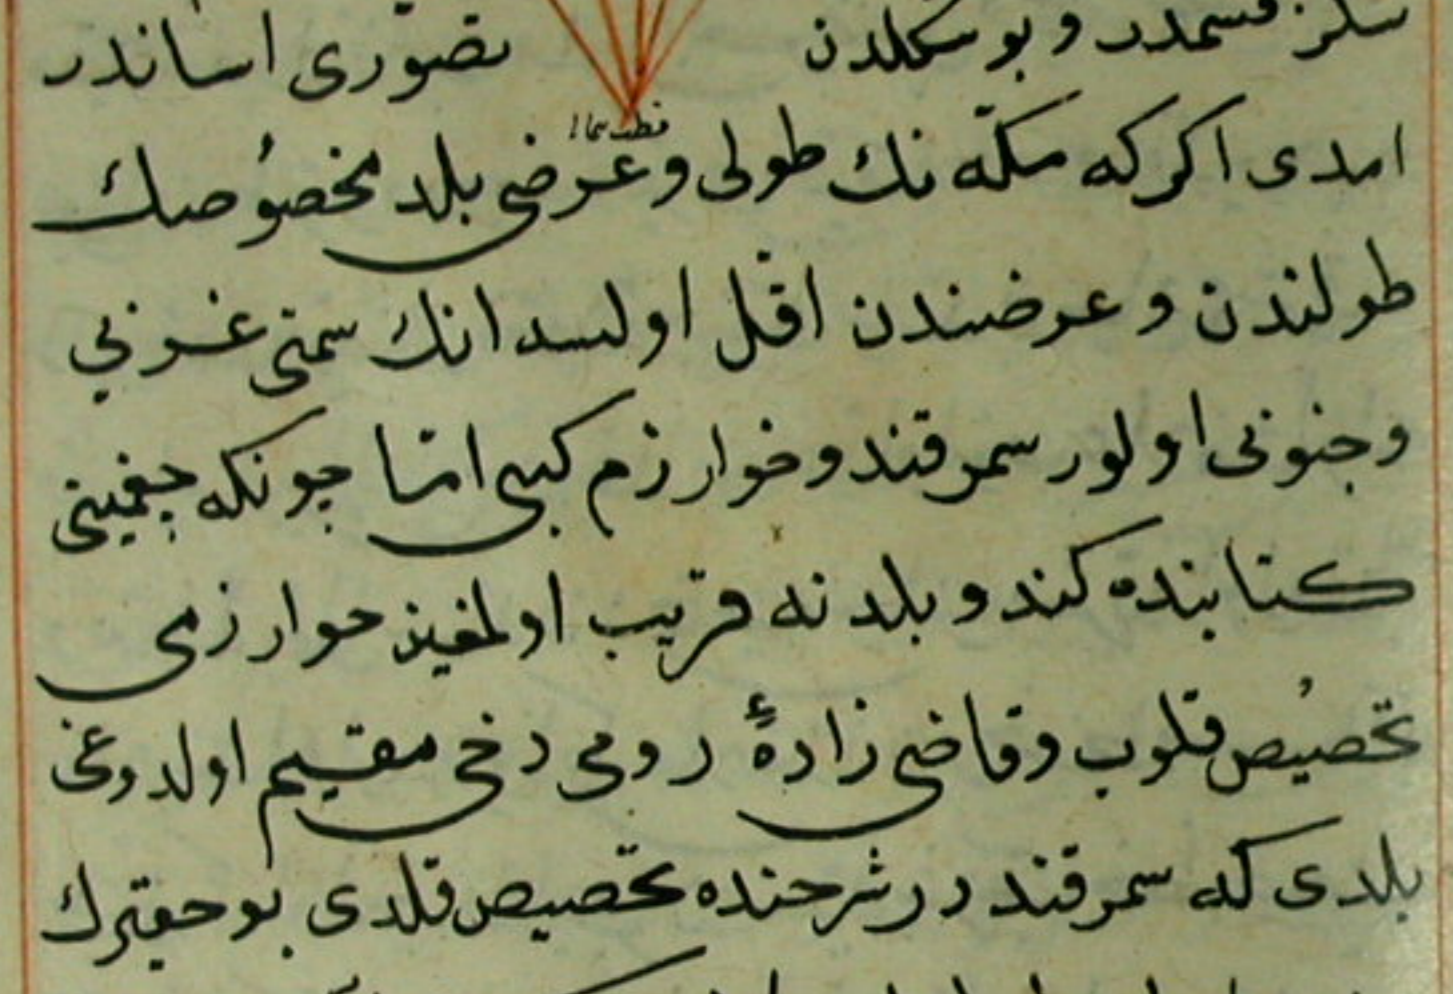 سكز قسمدر و بو شكلدن تصوّرى اساندر
امدى اكركه مكّه نك طولى و عرضى بلد مخصوُصك
طولندن و عرضندن اقل اولسه انك سمتى غربي
و جنوبى اولور سمرقند و خوارزم كبى امّا چونكه چغمينى
كتابنده كندو بلدنه قريب اولمغين خوارزمى
تخصيُص قلوب و قاضى زادهٔ رومى دخى مقيم اولدوغى
بلدى كه سمرقند در شرحنده تخصيص قلدى بو حقيرك